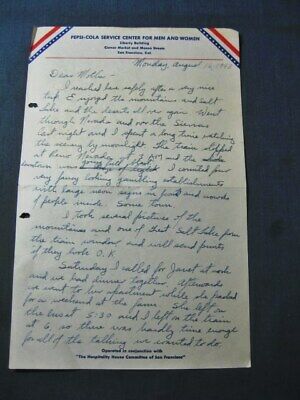 PEPSI-COLA SERVICE CENTER FOR MEN AND WOMEN
Liberty Building
Corner Market and Mason Streets
San Francisco, Cal.
Monday, August 16, 1943
Dear Mother -
I reached here safely after a very nice
trip. I enjoyed the mountains and Salt
Lake and the deserts all over again. Went
through Nevada and over the Sierras
last night and I spent a long time watching
the scenery by moonlight. The train stopped
at Reno Nevada and the whole
downtown was going full blast. I counted four
very fancy looking gambling establishments
with large neon signs in front and crowds
of people inside. Some town.
I took several pictures of the
mountains and one of Great Salt Lake from
the train window and will send prints
if they look O.K.
Saturday I called for Janet at work
and we had dinner together. Afterwards
we went to her apartment while she packed
for a weekend at the farm. She left on
the bus at 5:30 and I left on the train
at 6, so there was hardly time enough
for all of the talking we wanted to do.
Operated in conjunction with
"The Hospitality House Committee of San Francisco"